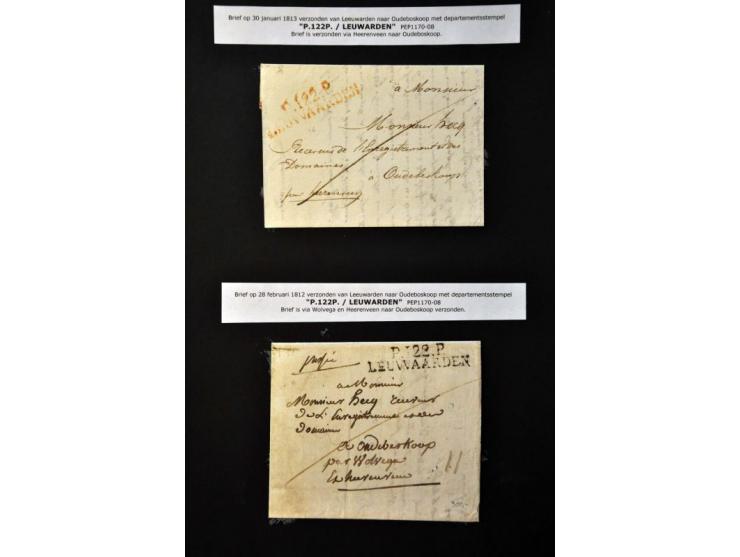 Brief op 30 januari 1813 verzonden van Leeuwarden naar Oudeboskoop met departementsstempel
"P.122P. / LEUWARDEN" PEP1170-08
Brief is verzonden via Heerenveen naar Oudeboskoop.
P.122.P
LEUWAARDEN
à Monsieur
Monsieur Hecq
Receveur de l'Enregistrement et des
Domaines
à Oudeberkoop
par
Brief op 28 februari 1812 verzonden van Leeuwarden naar Oudeboskoop met departementsstempel
"P.122P. / LEUWARDEN" PEP1170-08
Brief is via Wolvega en Heerenveen naar Oudeboskoop verzonden.
P.122.P
LEUWAARDEN
a Monsieur
Monsieur Hecq
Domaine
a oudeberkoop
par Wolvega